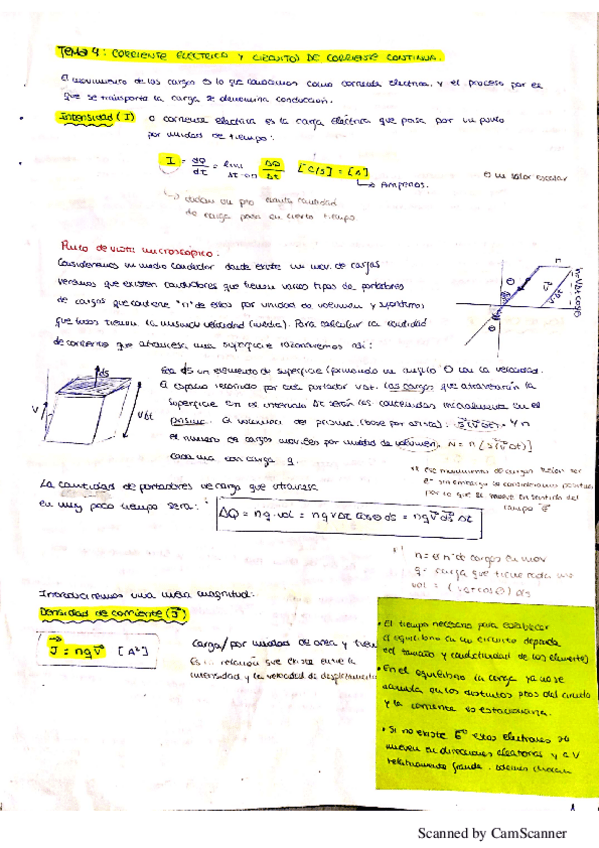 TEMA 4: CORRIENTE ELÉCTRICA Y CIRCUITOS DE CORRIENTE CONTINUA.
El movimiento de las cargas es lo que conocemos como corriente eléctrica, y el proceso por el
que se transporta la carga se denomina conducción.
Intensidad (I) o corriente eléctrica es la carga eléctrica que pasa por un punto
por unidad de tiempo:
I = dQ/dt = lim Δt→0 ΔQ/Δt [C/s] = [A]
Es un valor escalar
→ Amperios.
cantidad
de carga pasa en cierto tiempo
Punto de vista microscópico:
Consideremos un medio conductor donde existe un mov. de cargas
veremos que existen conductores que tienen varios tipos de portadores
de cargas que contiene "n" de estos por unidad de volumen y suponemos
que todos tienen la misma velocidad (media). Para calcular la cantidad
de corriente que atraviesa una superficie razonaremos así:
ds
V
Vdt
Sea ds un elemento de superficie formando un ángulo θ con la velocidad.
El espacio recorrido por cada portador vdt. Las cargas que atravesarán la
superficie en el intervalo Δt serán las contenidas inicialmente en el
prisma. El volumen del prisma (base por altura): Y n
el número de cargas móviles por unidad de volumen,
cada una con carga q.
La cantidad de portadores de carga que atraviesa
en muy poco tiempo será:
ΔQ = nq·vol = nqvΔt cosθ ds = nq v⃗ ds⃗ Δt
n = es nº de cargas en mov
q = carga que tiene cada una
Introduciremos una nueva magnitud:
Densidad de corriente (J⃗)
J⃗ = nqv⃗ [A²]
carga/por unidad de área y
Es la relación que existe entre la
intensidad y la velocidad de desplazamiento
• El tiempo necesario para establecer
el equilibrio en un circuito depende
del tamaño y conductividad de los elementos
• En el equilibrio la carga ya no se
acumula en los distintos ptos del circuito
y la corriente es estacionaria.
• Si no existe estos electrones se
mueven en direcciones aleatorias y a V
relativamente grande. Además chocan
1
Scanned by CamScanner